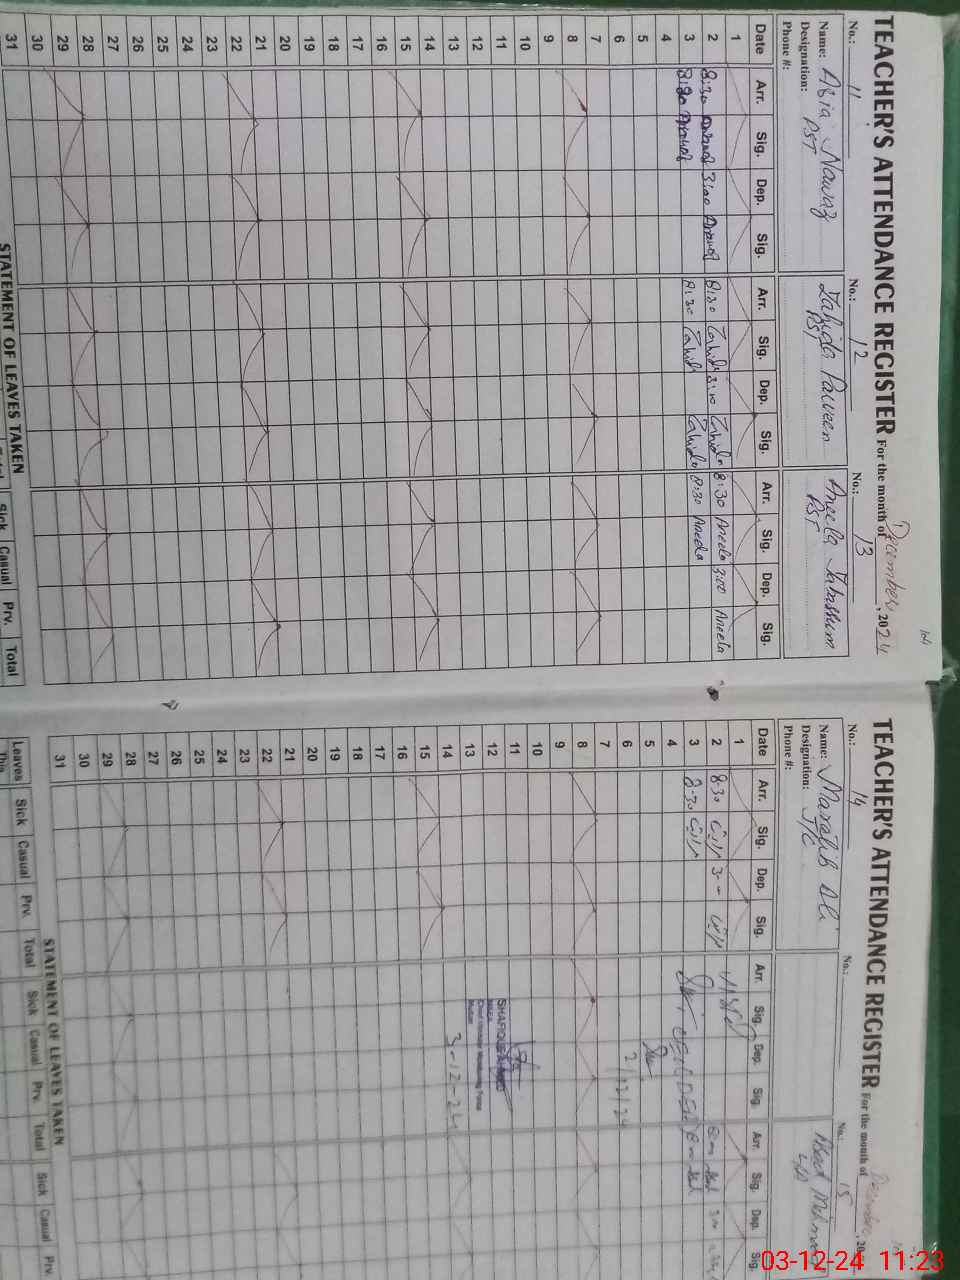 TEACHER'S ATTENDANCE REGISTER For the month of December, 2024
No.: 11 No.: 12 No.: 13
Name: Asia Nawaz Zahida Parveen Aneela Tabassum
Designation: PST PST PST
Phone #:
Date Arr. Sig. Dep. Sig. Arr. Sig. Dep. Sig. Arr. Sig. Dep. Sig.
1
2 8:30 3:00 8:30 Zahida 3:10 Zahida 8:30 Aneela 3:00 Aneela
3 8:30 8:30 Zahida Zahida 8:30 Aneela
4
5
6
7
8
9
10
11
12
13
14
15
16
17
18
19
20
21
22
23
24
25
26
27
28
29
30
31
STATEMENT OF LEAVES TAKEN
Sick Casual Prv. Total
TEACHER'S ATTENDANCE REGISTER For the month of December, 20
No.: 14 No.: No.: 15
Name: Ali
Designation:
Phone #:
Date Arr. Sig. Dep. Sig. Arr. Sig. Dep. Sig. Arr. Sig. Dep. Sig.
1
2 8-30
3 8-30
4
5
6 2/12/24
7
8
9
10
11
12
13
14 3-12-24
15
16
17
18
19
20
21
22
23
24
25
26
27
28
29
30
31
STATEMENT OF LEAVES TAKEN
Leaves Sick Casual Prv. Total Sick Casual Prv. Total Sick Casual Prv.
03-12-24 11:23